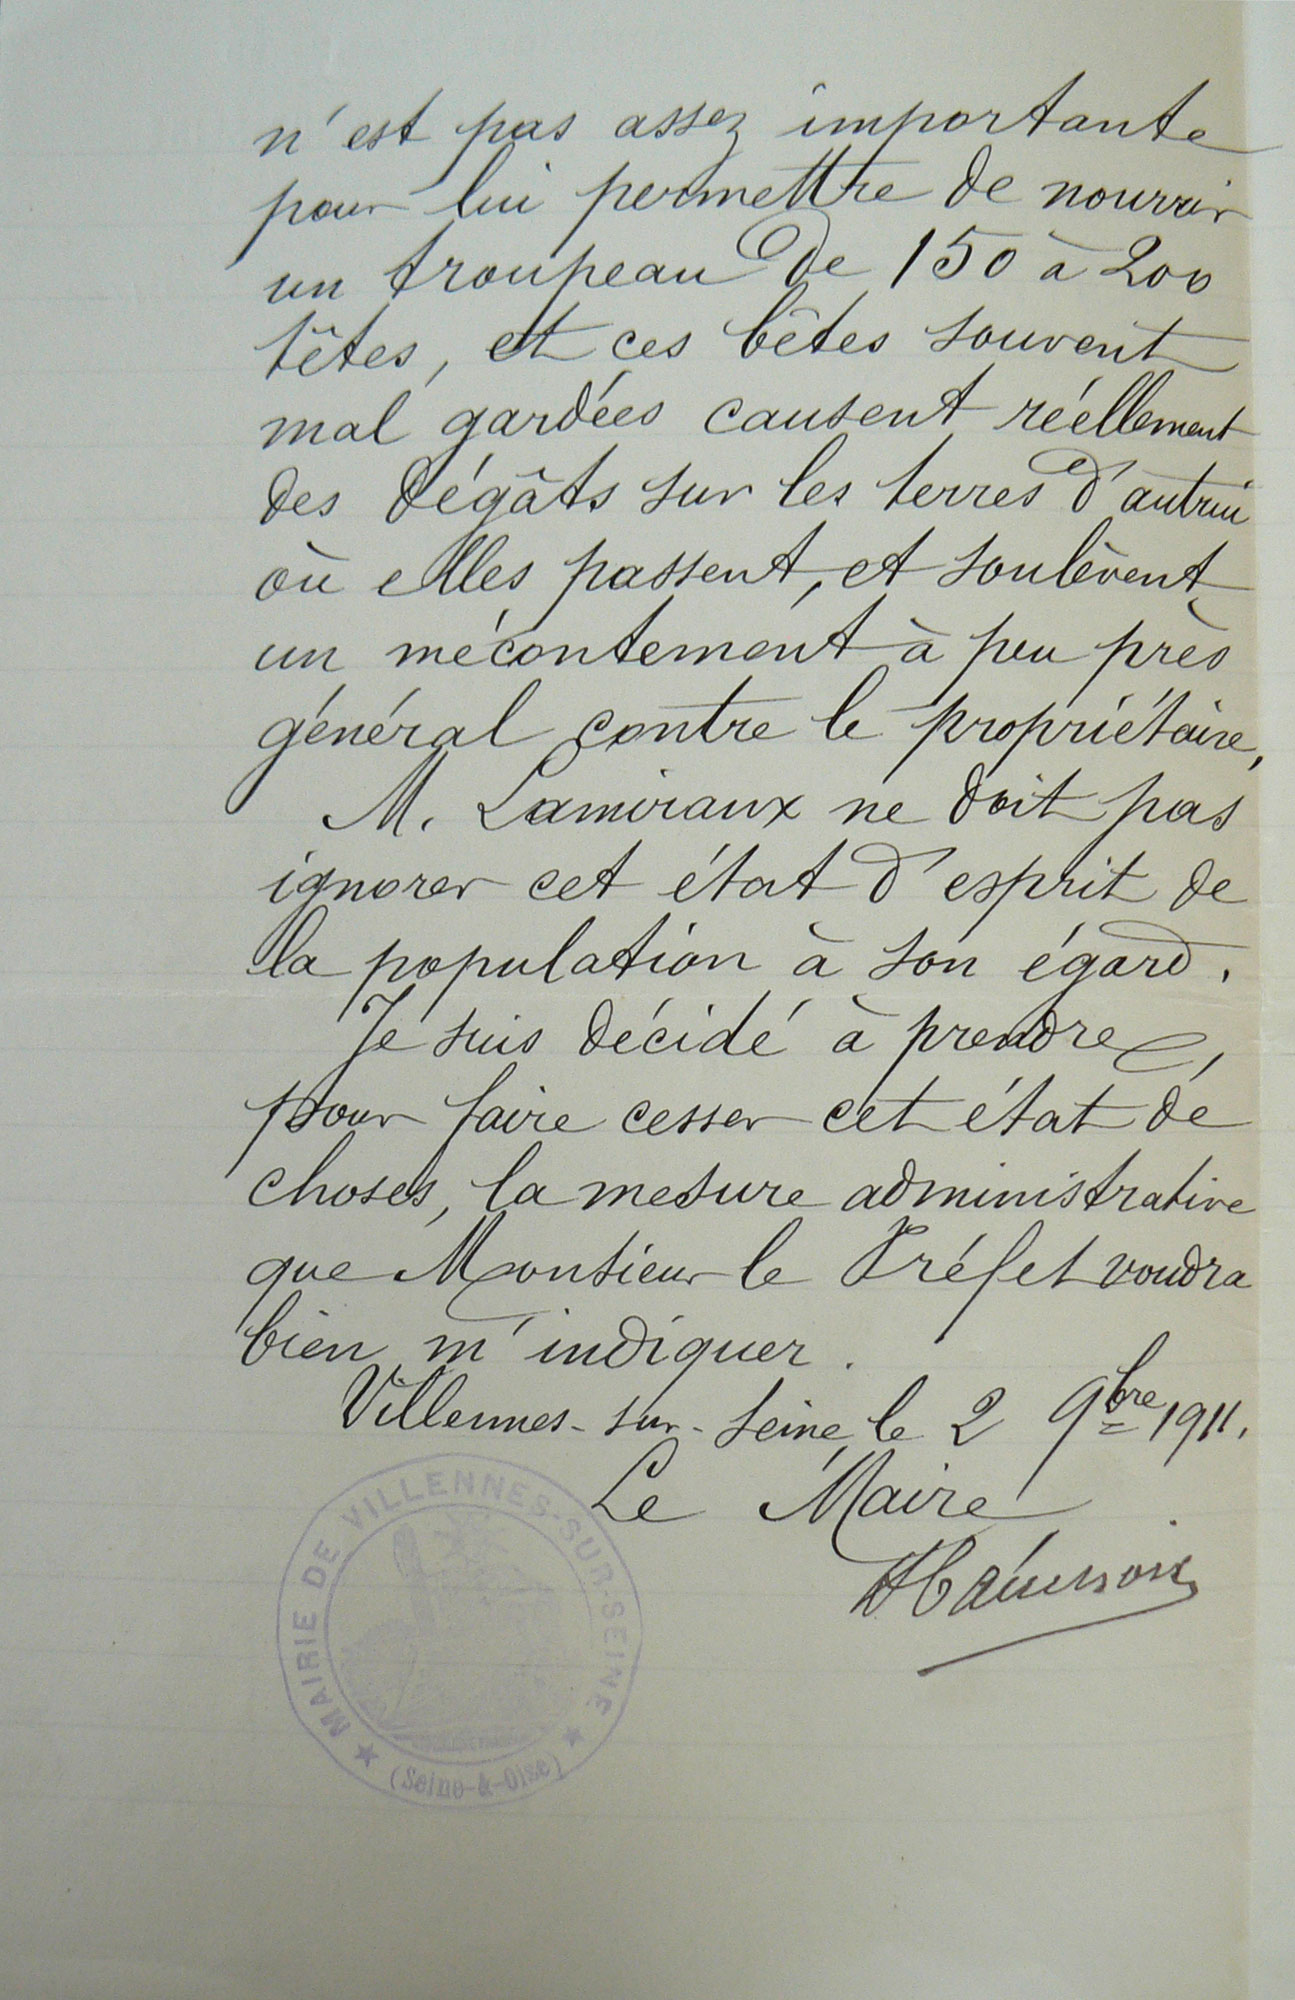 n'est pas assez importante
pour lui permettre de nourrir
un troupeau de 150 à 200
têtes, et ces bêtes souvent
mal gardées causent réellement
des dégâts sur les terres d'autrui
où elles passent, et soulèvent
un mécontement à peu près
général contre le propriétaire,
M. Lamiraux ne doit pas
ignorer cet état d'esprit de
la population à son égard.
Je suis décidé à prendre,
pour faire cesser cet état de
choses, la mesure administrative
que Monsieur le Préfet voudra
bien m'indiquer.
Villennes-sur-Seine, le 2 9bre 1911.
Le Maire
MAIRIE DE VILLENNES-SUR-SEINE
(Seine-&-Oise)